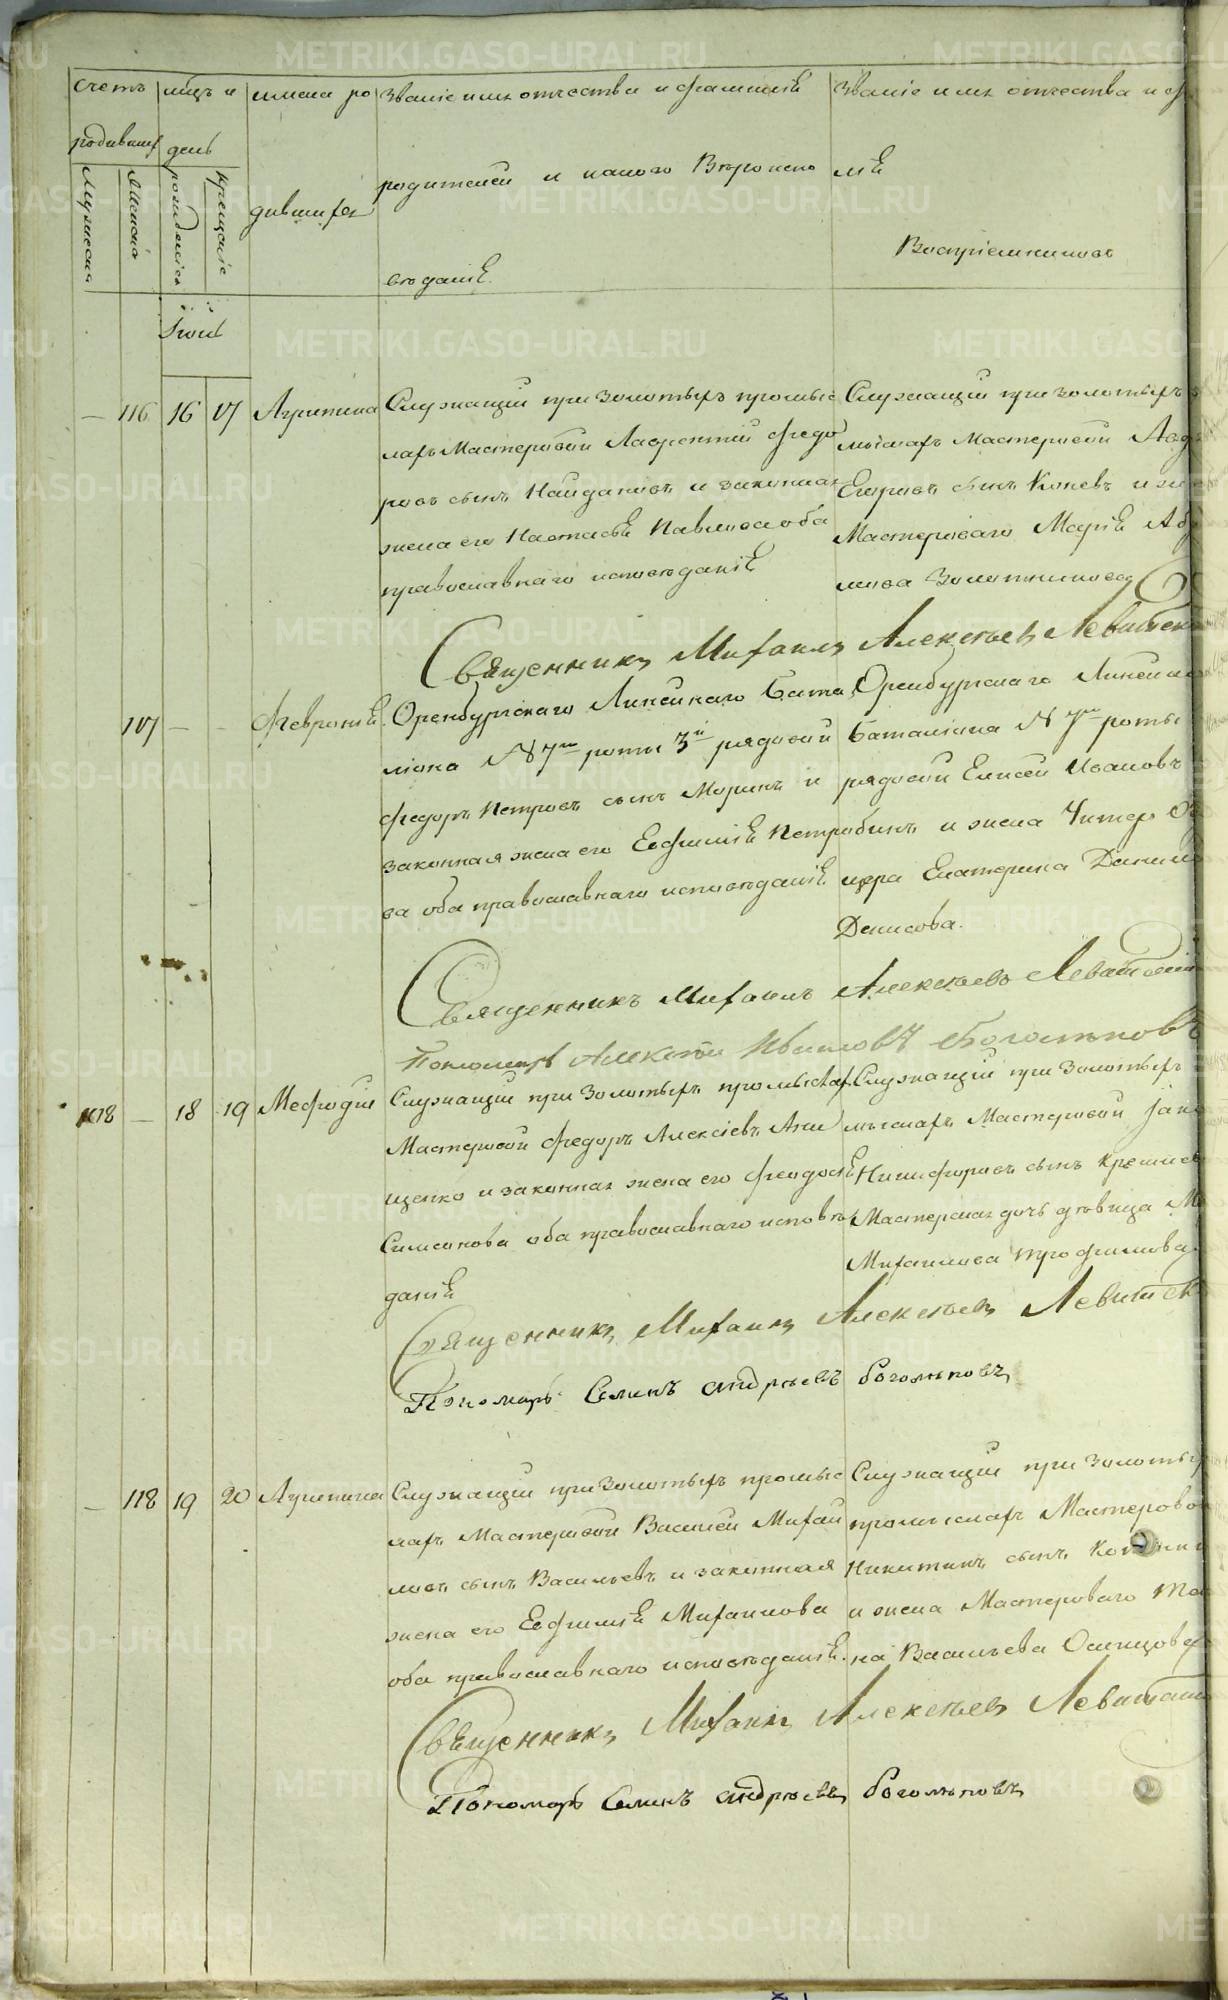 METRIKI.GASO-URAL.RU
счетъ
родивших
Мужеска
Женска
мцъ и
день
рожденія
крещенія
имена ро
дившихся
Званіе имя отчество и фамилія
родителей и какого Вѣроиспо
вѣданія
Званіе имя отчества и ф
лія
Воспріемниковъ
Іюнь
— 116 16 17 Агрипина
Служащій при Золотыхъ промыс
лахъ Мастеровой Лаврентій Федо
ровъ сынъ Найдановъ и законная
жена его Настасья Павлова оба
православнаго исповѣданія
Служащій при золотыхъ
мыслахъ Мастеровой
Егоровъ сынъ Коневъ и же
Мастероваго Марія
мова Золотникова
Священникъ Михаилъ Алексѣевъ Левитск
117 — - Февронія
Оренбургскаго Линейнаго Бата
ліона N 7го роты 3й рядовой
Федоръ Петровъ сынъ Моринъ и
законная жена его Евфимія Петро
ва оба православнаго исповѣданія
Оренбургскаго Линейна
Баталіона N 7го роты
рядовой Елисей Ивановъ
бинъ и жена Унтеръ О
цера Екатерина Данило
Денисова.
Священникъ Михаилъ Алексѣевъ Левитскій
Пономарь Алексѣй Ивановъ Боголѣповъ
118 — 18 19 Мефодія
Служащій при Золотыхъ промыслах
Мастеровой Федоръ Алексіевъ Они
щенко и законная жена его Феодосія
Симонова оба православнаго исповѣ
данія
Служащій при Золотыхъ
мыслахъ Мастеровой Іак
Никифоровъ сынъ
Мастерская дочь дѣвица М
Михаилова Трофимова.
Священникъ Михаилъ Алексѣевъ Левитск
Пономарь Семенъ андрѣевъ боголѣповъ
— 118 19 20 Агрипина
Служащій при Золотыхъ промыс
лахъ Мастеровой Василей Михаи
ловъ сынъ Васильевъ и законная
жена его Евфимія Михаилова
оба православнаго исповѣданія.
Служащій при Золоты
промыслахъ Мастерово
Никитинъ сынъ
и жена Мастероваго
на Васильева Осипцова
Священникъ Михаилъ Алексѣевъ Левитск
Пономарь Семенъ андрѣевъ боголѣповъ